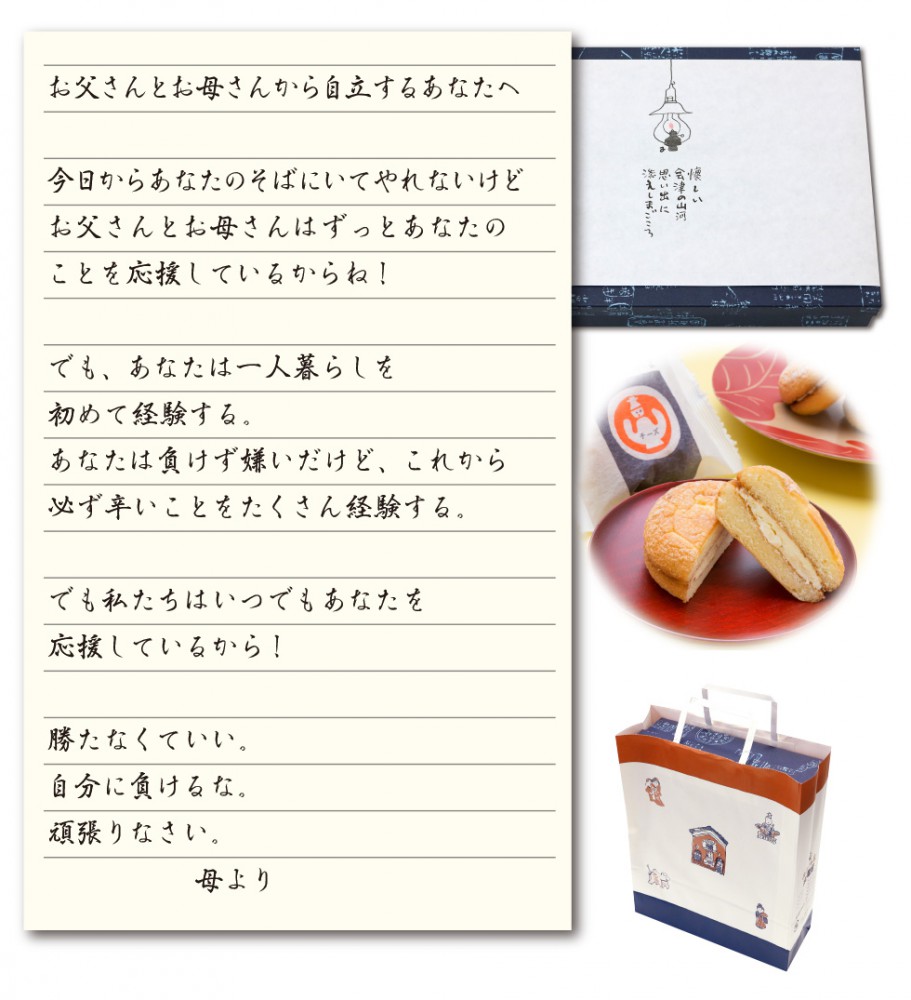 お父さんとお母さんから自立するあなたへ
今日からあなたのそばにいてやれないけど
お父さんとお母さんはずっとあなたの
ことを応援しているからね！
でも、あなたは一人暮らしを
初めて経験する。
あなたは負けず嫌いだけど、これから
必ず辛いことをたくさん経験する。
でも私たちはいつでもあなたを
応援しているから！
勝たなくていい。
自分に負けるな。
頑張りなさい。
母より
懐しい
会津の山河
思い出に
添えしまごころ
チーズ